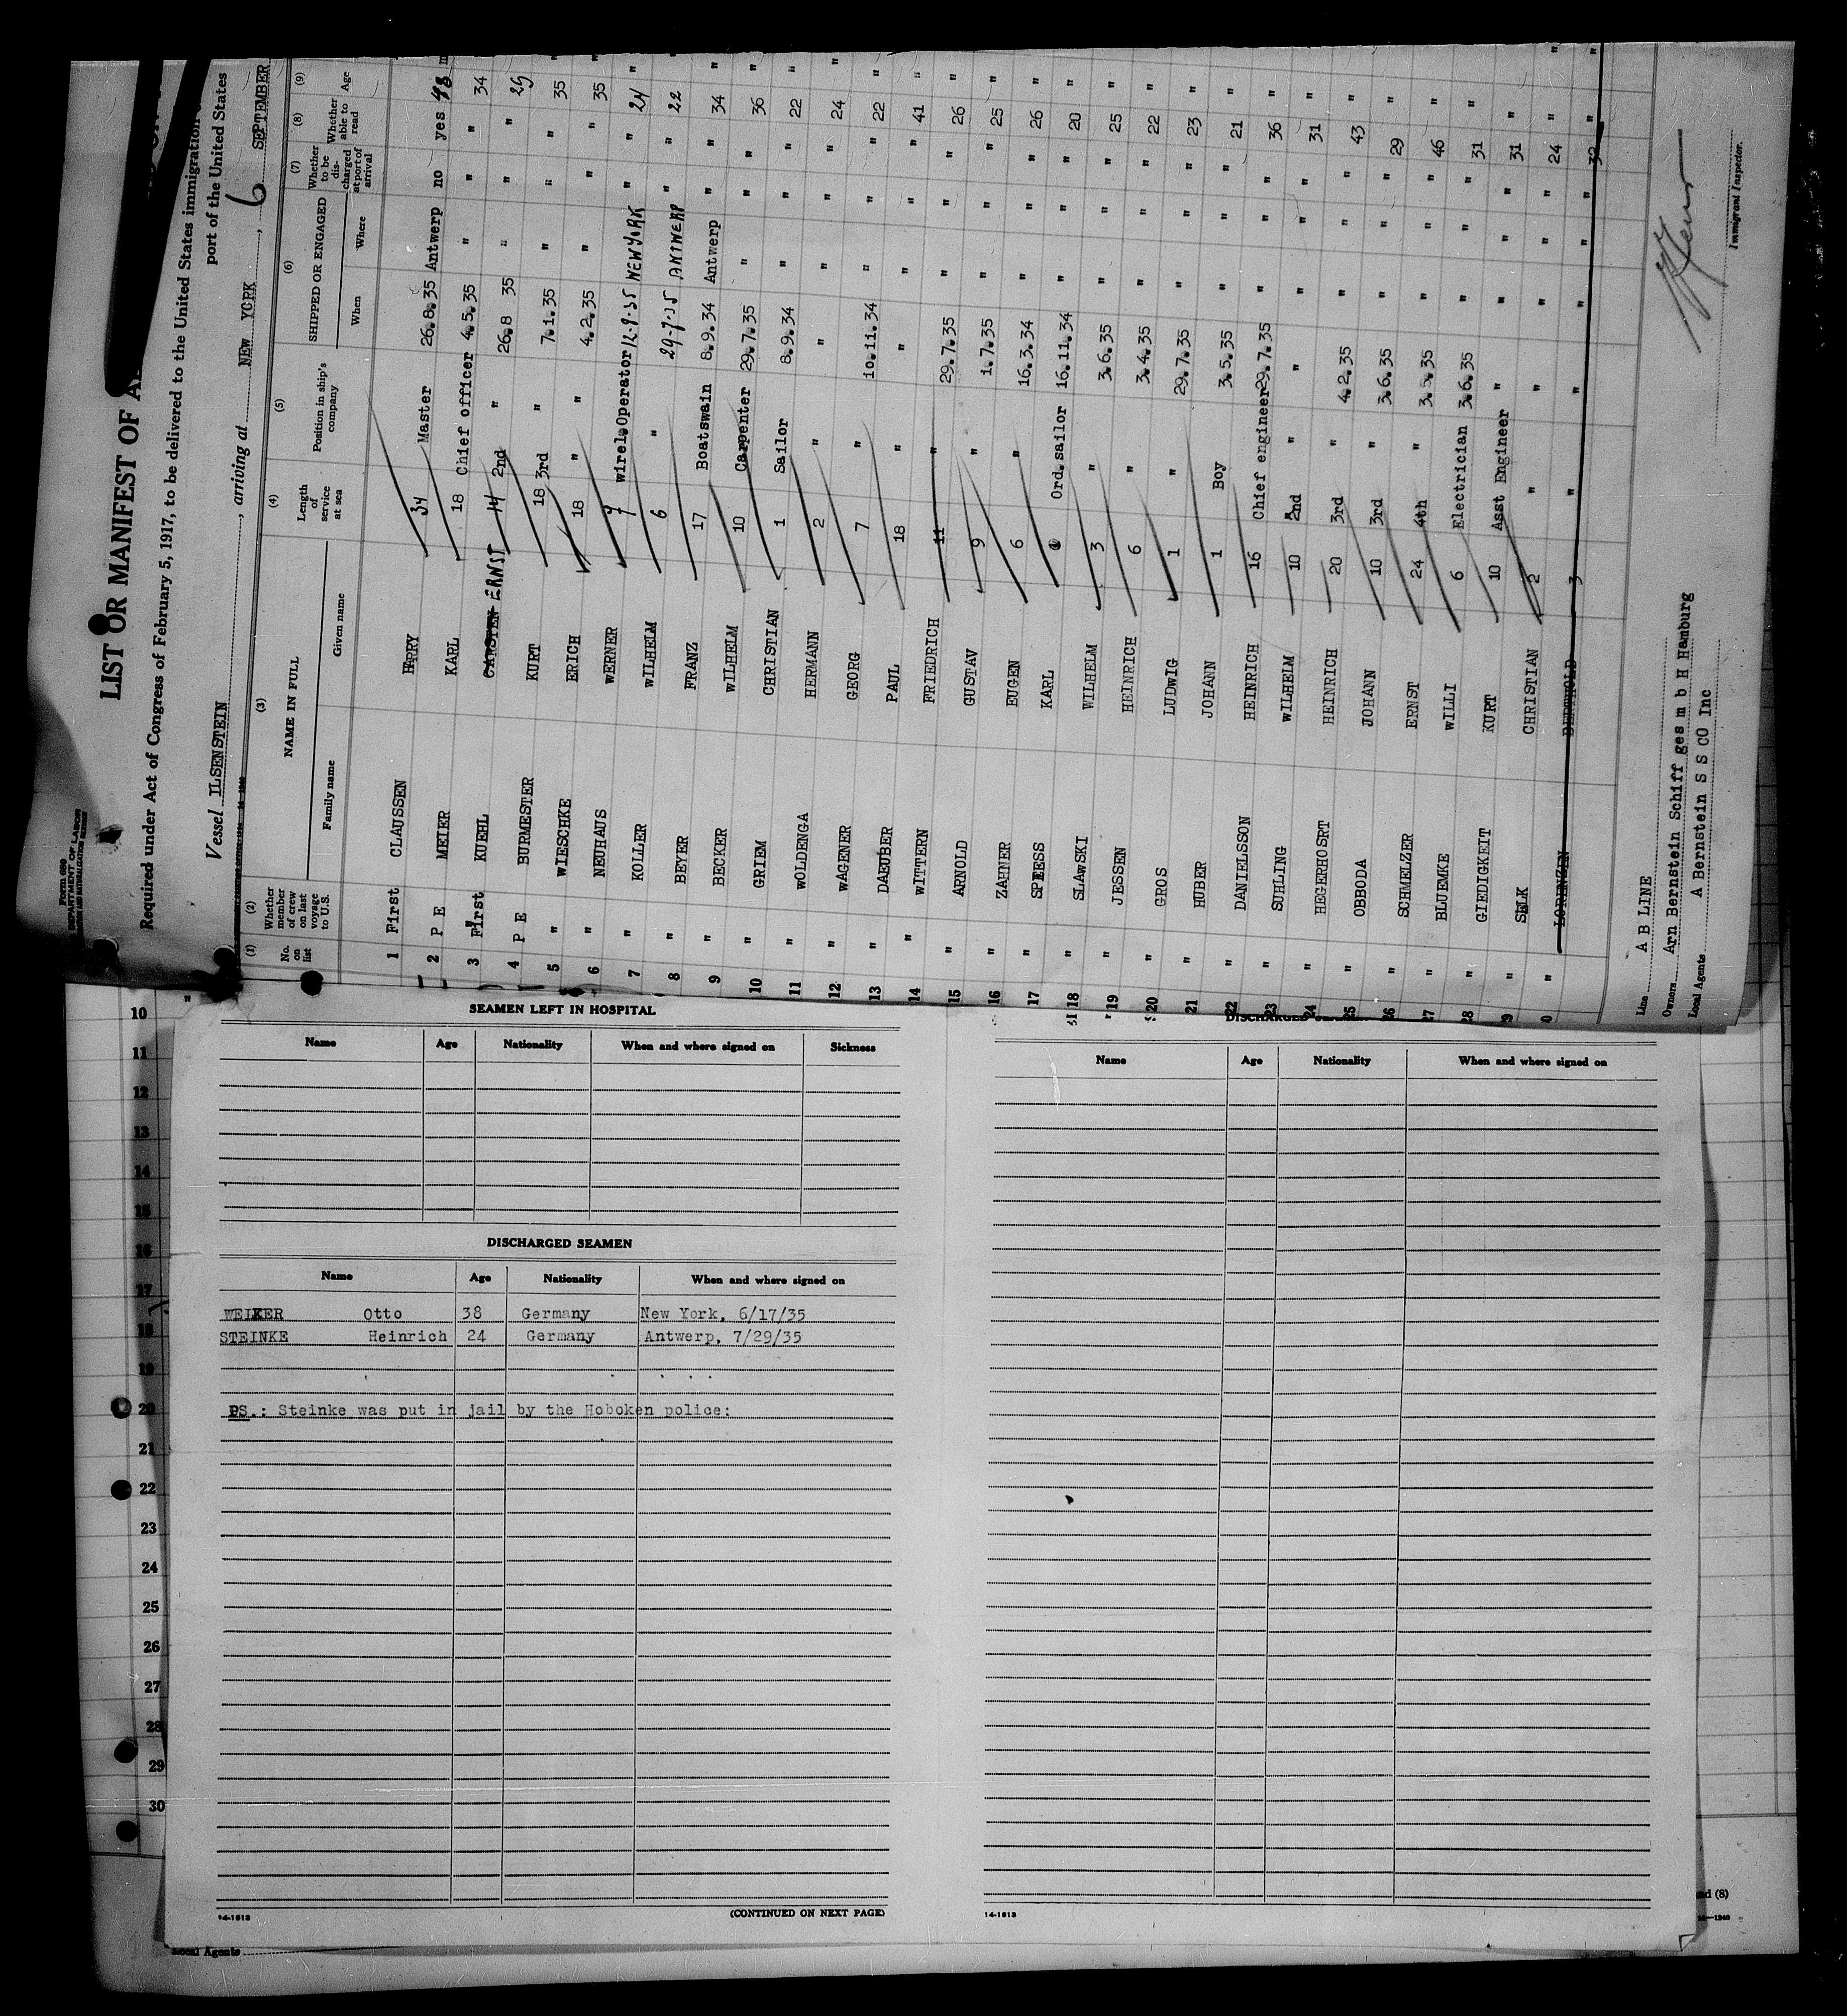 Form 689
DEPARTMENT OF LABOR
LIST OR MANIFEST OF
Required under Act of Congress of February 5, 1917, to be delivered to the United States immigration
port of the United States
Vessel ILSENSTEIN, arriving at NEW YORK, 6 SEPTEMBER
(1) (2) (3) (4) (5) (6) (7) (8) (9)
No. on list Whether member of crew on last voyage to U.S. NAME IN FULL Family name Given name Length of service at sea Position in ship's company SHIPPED OR ENGAGED When Where Whether to be discharged at port of arrival Whether able to read Age
1 First CLAUSSEN HARRY 34 Master 26.8.35 Antwerp no yes 48
2 P E MEIER KARL 18 Chief officer 4.5.35 " " " 34
3 First KUEHL CARSTEN ERNST 14 2nd " 26.8 35 " " " 29
4 P E BURMESTER KURT 18 3rd " 7.1.35 " " " 35
5 " WIESCHKE ERICH 18 " " 4.2.35 " " " 35
6 " NEUHAUS WERNER 9 Wirel.Operator 12.9.35 NEW YORK " " 24
7 " KOLLER WILHELM 6 " 29-7-35 ANTWERP " " 22
8 " BEYER FRANZ 17 Boatswain 8.9.34 Antwerp " " 34
9 " BECKER WILHELM 10 Carpenter 29.7.35 " " " 36
10 " GRIEM CHRISTIAN 1 Sailor 8.9.34 " " " 22
11 " WOLDENGA HERMANN 2 " " " " " 24
12 " WAGENER GEORG 7 " 10.11.34 " " " 22
13 " DAEUBER PAUL 18 " " " " " 41
14 " WITTERN FRIEDRICH 11 " 29.7.35 " " " 26
15 " ARNOLD GUSTAV 9 " 1.7.35 " " " 25
16 " ZAHNER EUGEN 6 " 16.3.34 " " " 26
17 " SPIESS KARL Ord.sailor 16.11.34 " " " 20
18 " SLAWSKI WILHELM 3 " 3.6.35 " " " 25
19 " JESSEN HEINRICH 6 " 3.4.35 " " " 22
20 " GROS LUDWIG 1 " 29.7.35 " " " 23
21 " HUBER JOHANN 1 Boy 3.5.35 " " " 21
22 " DANIELSSON HEINRICH 16 Chief engineer 29.7.35 " " " 36
23 " SUHLING WILHELM 10 2nd " " " " " 31
24 " HEGERHOSRT HEINRICH 20 3rd " 4.2.35 " " " 43
25 " OBBODA JOHANN 10 3rd " 3.6.35 " " " 29
26 " SCHMELZER ERNST 24 4th " 3.5.35 " " " 46
27 " BLUEMKE WILLI 6 Electrician 3.6.35 " " " 31
28 " GIEDIGKEIT KURT 10 Asst Engineer " " " " 31
9 " SELK CHRISTIAN 2 " " " " " 24
0 " LORENZEN BERTHOLD 3 " " " " " 32
Line A B LINE
Owners Arn Bernstein Schiff ges m b H Hamburg
Local Agents A Bernstein S S CO Inc
Immigrant Inspector.
10
11
12
13
14
15
16
17
18
19
20
21
22
23
24
25
26
27
28
29
30
SEAMEN LEFT IN HOSPITAL
Name Age Nationality When and where signed on Sickness
DISCHARGED SEAMEN
Name Age Nationality When and where signed on
WEIKER Otto 38 Germany New York, 6/17/35
STEINKE Heinrich 24 Germany Antwerp, 7/29/35
PS.: Steinke was put in jail by the Hoboken police:
14-1613 (CONTINUED ON NEXT PAGE)
DISCHARGED
Name Age Nationality When and where signed on
14-1613
Local Agents
and (8)